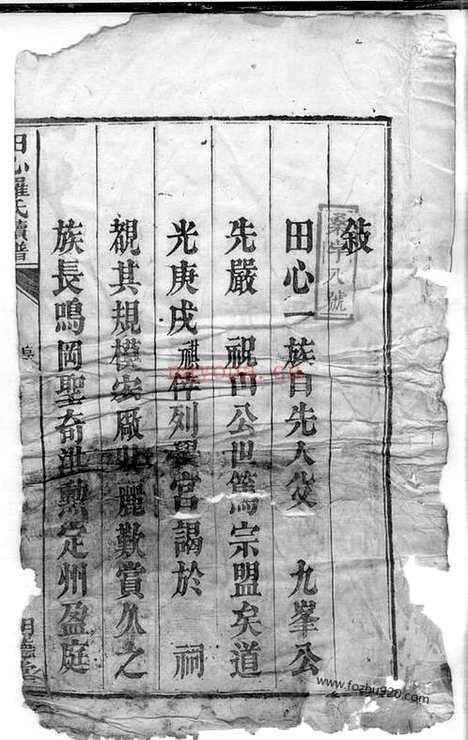 敍
田心一族自先人父 九峯公
先嚴 祝田公世篤宗盟矣道
光庚戌 祺倖列黌宮謁於 祠
覩其規模宏廠壯麗歎賞久之
族長鳴岡聖奇洪勲定州盈庭
田心羅氏續譜
nayona.cn
www.fozhu920.com